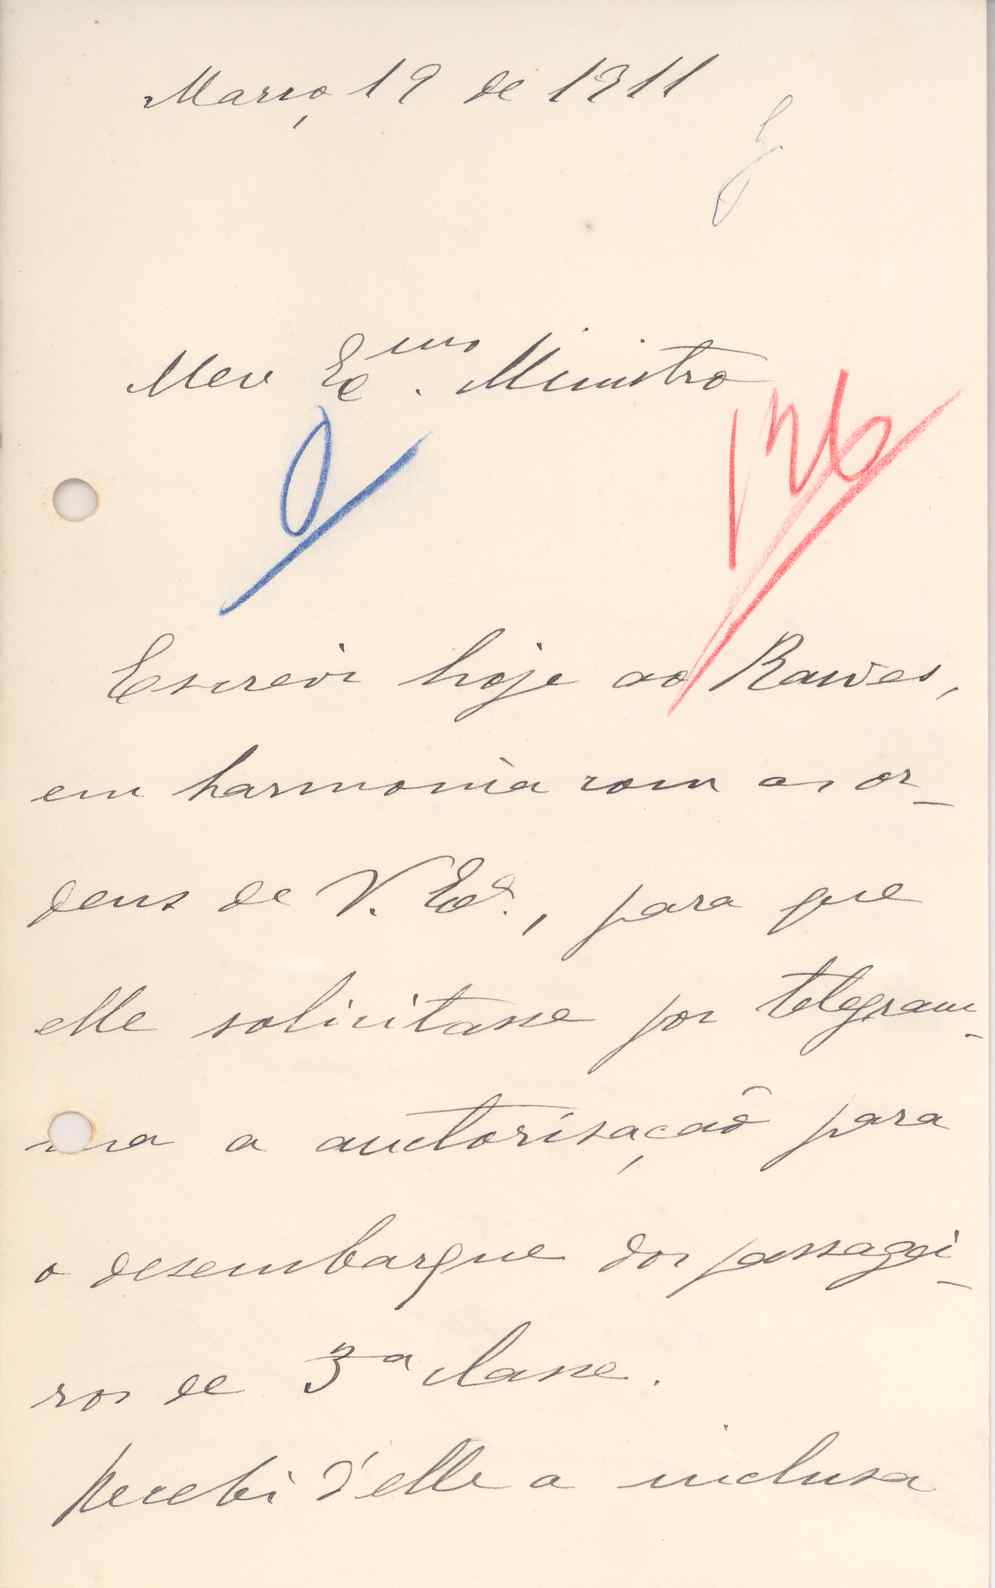 Março 19 de 1911
Meu Ex.mo Ministro
126
Escrevi hoje ao Rawes,
em harmonia com as or-
dens de V. Ex.ª, para que
elle solicitasse por telegram-
ma a auctorisação para
o desembarque dos passagei-
ros de 3ª classe.
Recebi d'elle a inclusa